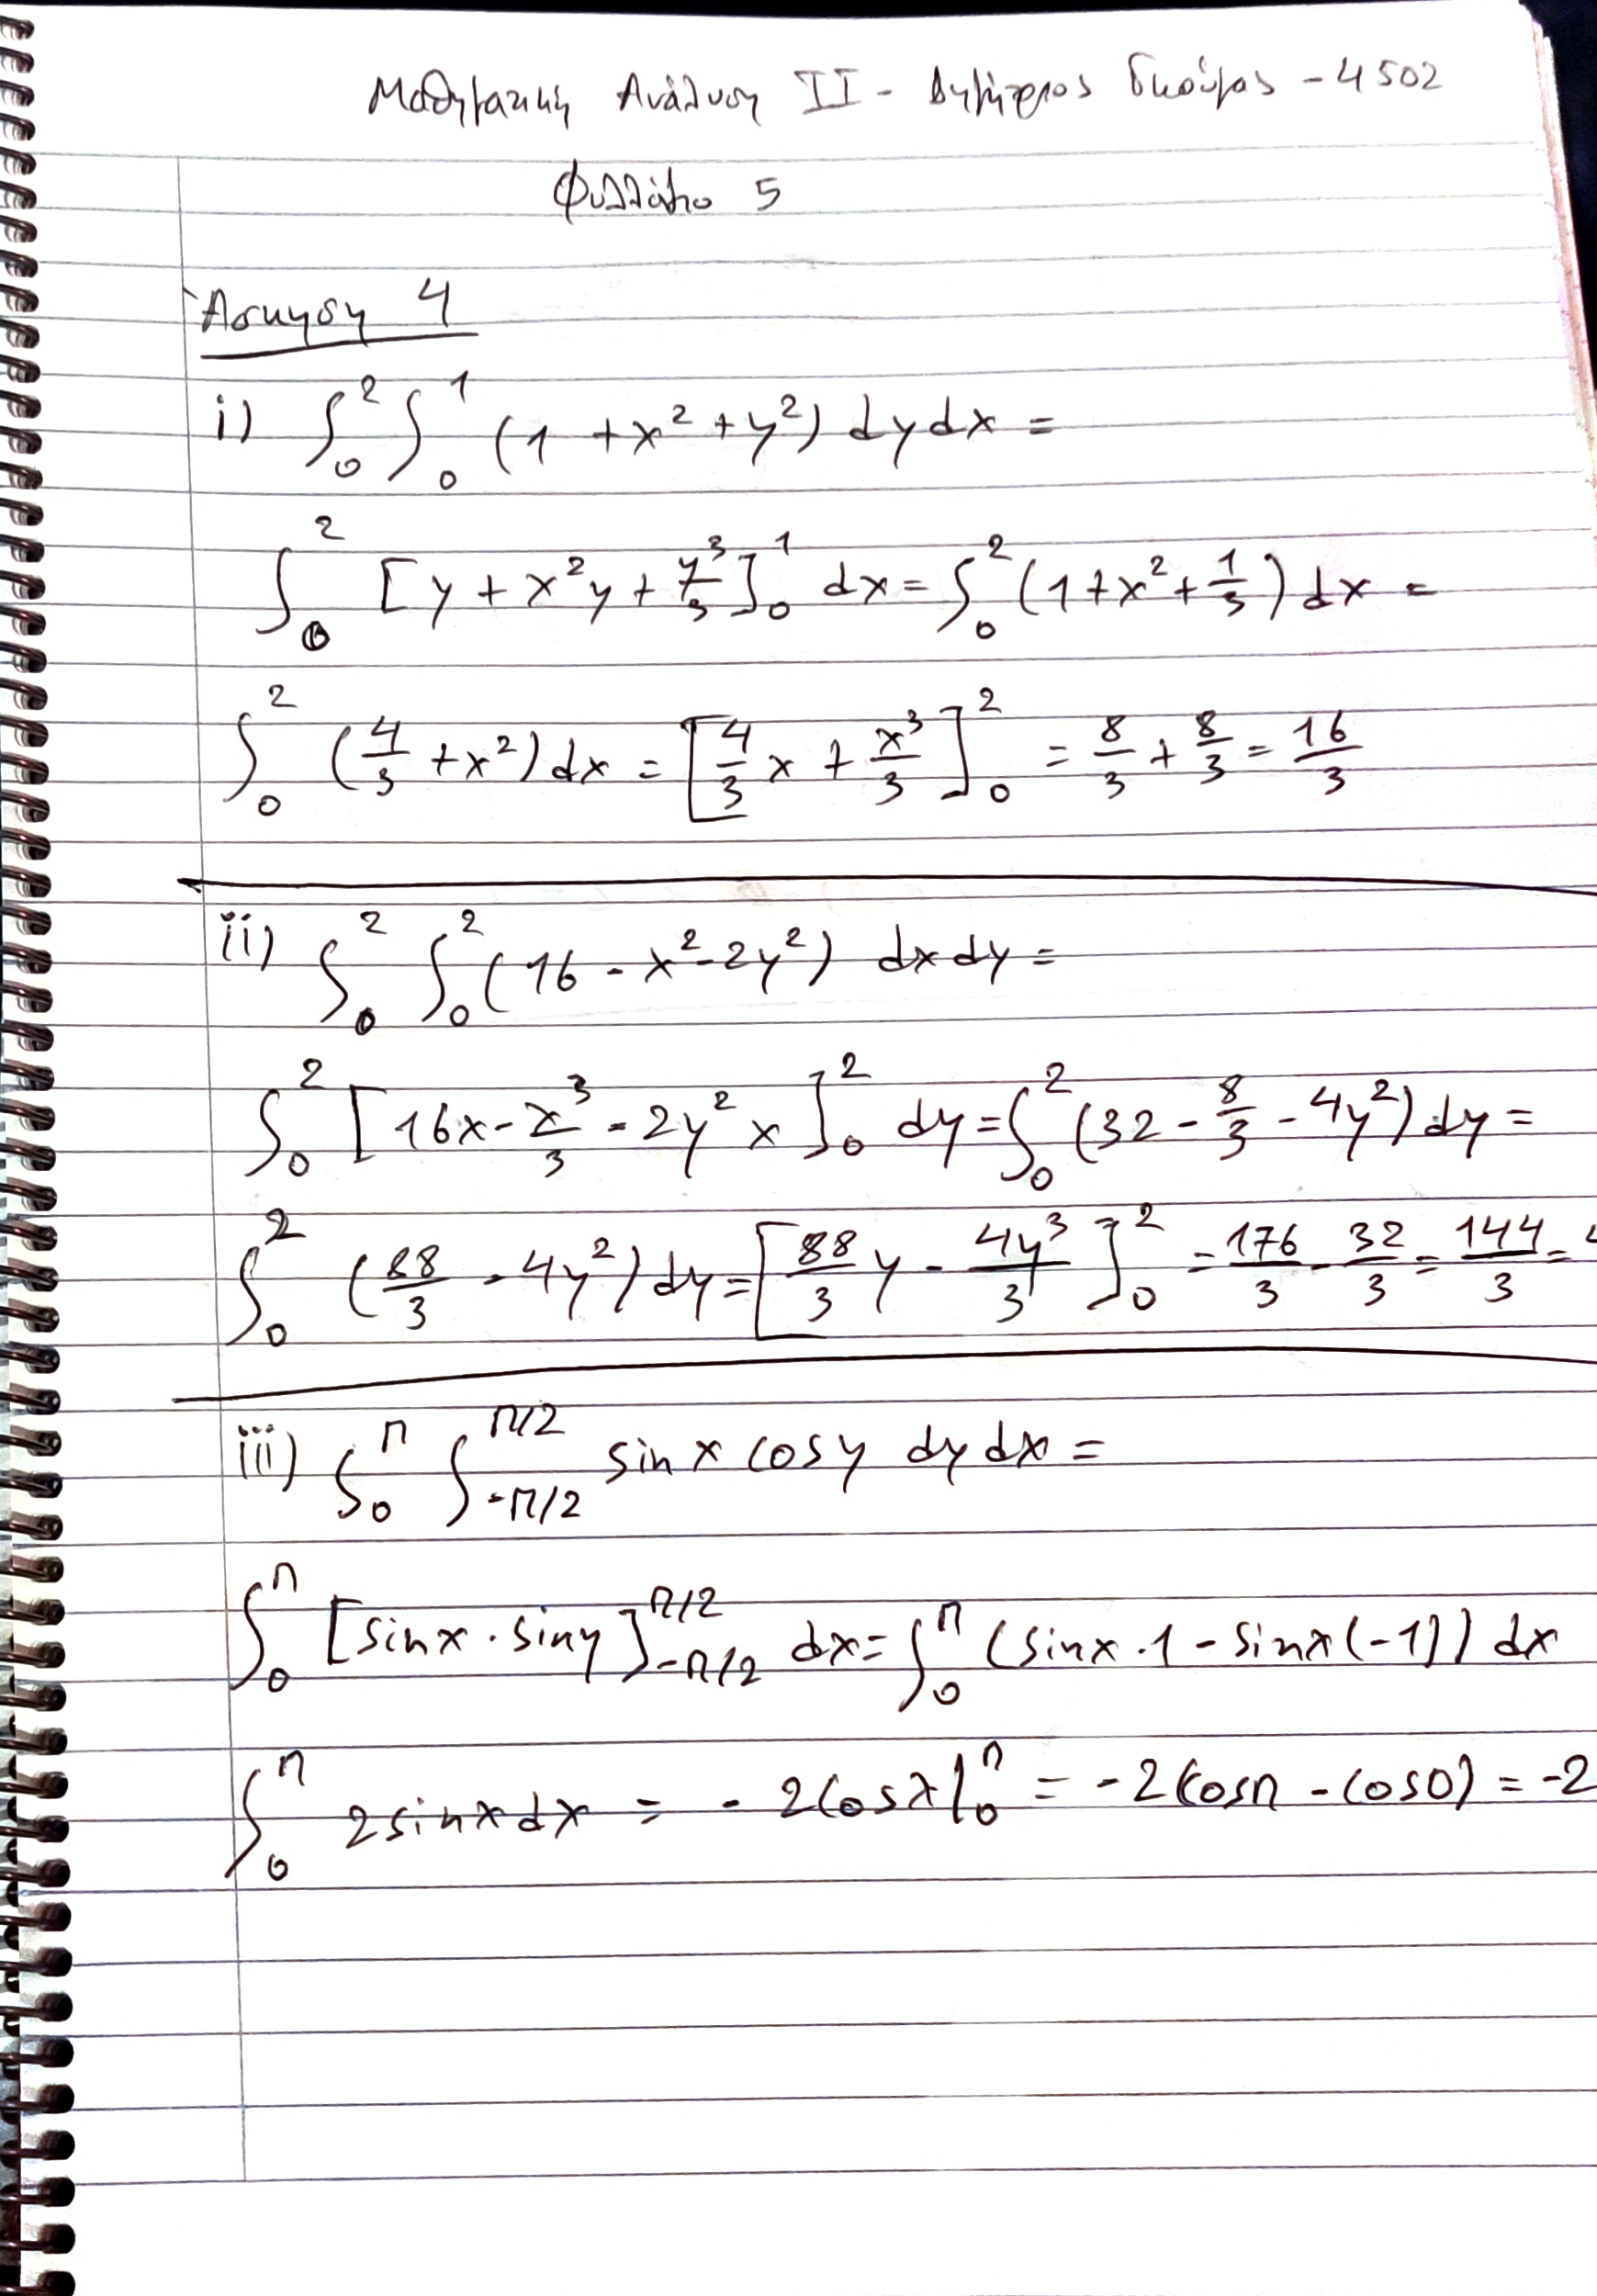 Μαθηματική Ανάλυση II - Δημήτριος Γκούμας - 4502
Φυλλάδιο 5
Άσκηση 4
i) ∫₀² ∫₀¹ (1 + x² + y²) dy dx =
∫₀² [y + x²y + y³/3]₀¹ dx = ∫₀² (1 + x² + 1/3) dx =
∫₀² (4/3 + x²) dx = [4/3 x + x³/3]₀² = 8/3 + 8/3 = 16/3
ii) ∫₀² ∫₀² (16 - x² - 2y²) dx dy =
∫₀² [16x - x³/3 - 2y²x]₀² dy = ∫₀² (32 - 8/3 - 4y²) dy =
∫₀² (88/3 - 4y²) dy = [88/3 y - 4y³/3]₀² = 176/3 - 32/3 = 144/3 =
iii) ∫₀^π ∫_{-π/2}^{π/2} sinx cosy dy dx =
∫₀^π [sinx · siny]_{-π/2}^{π/2} dx = ∫₀^π (sinx · 1 - sinx(-1)) dx
∫₀^π 2sinx dx = - 2cosx |₀^π = -2(cosπ - cos0) = -2